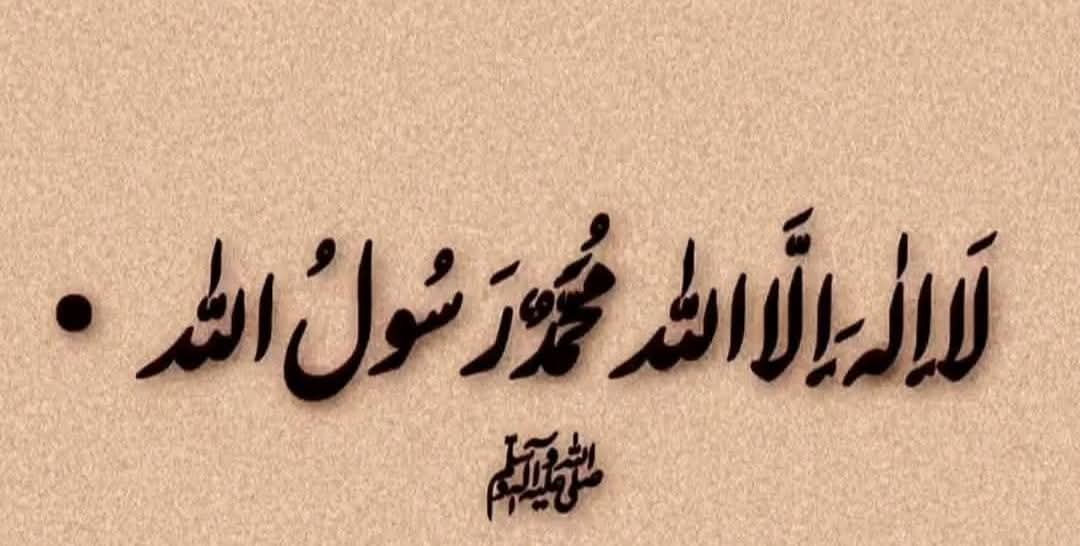 لَا اِلٰہَ اِلَّا اللہ مُحَمَّدٌ رَسُولُ اللہ •
صلی اللہ علیہ وآلہ وسلم